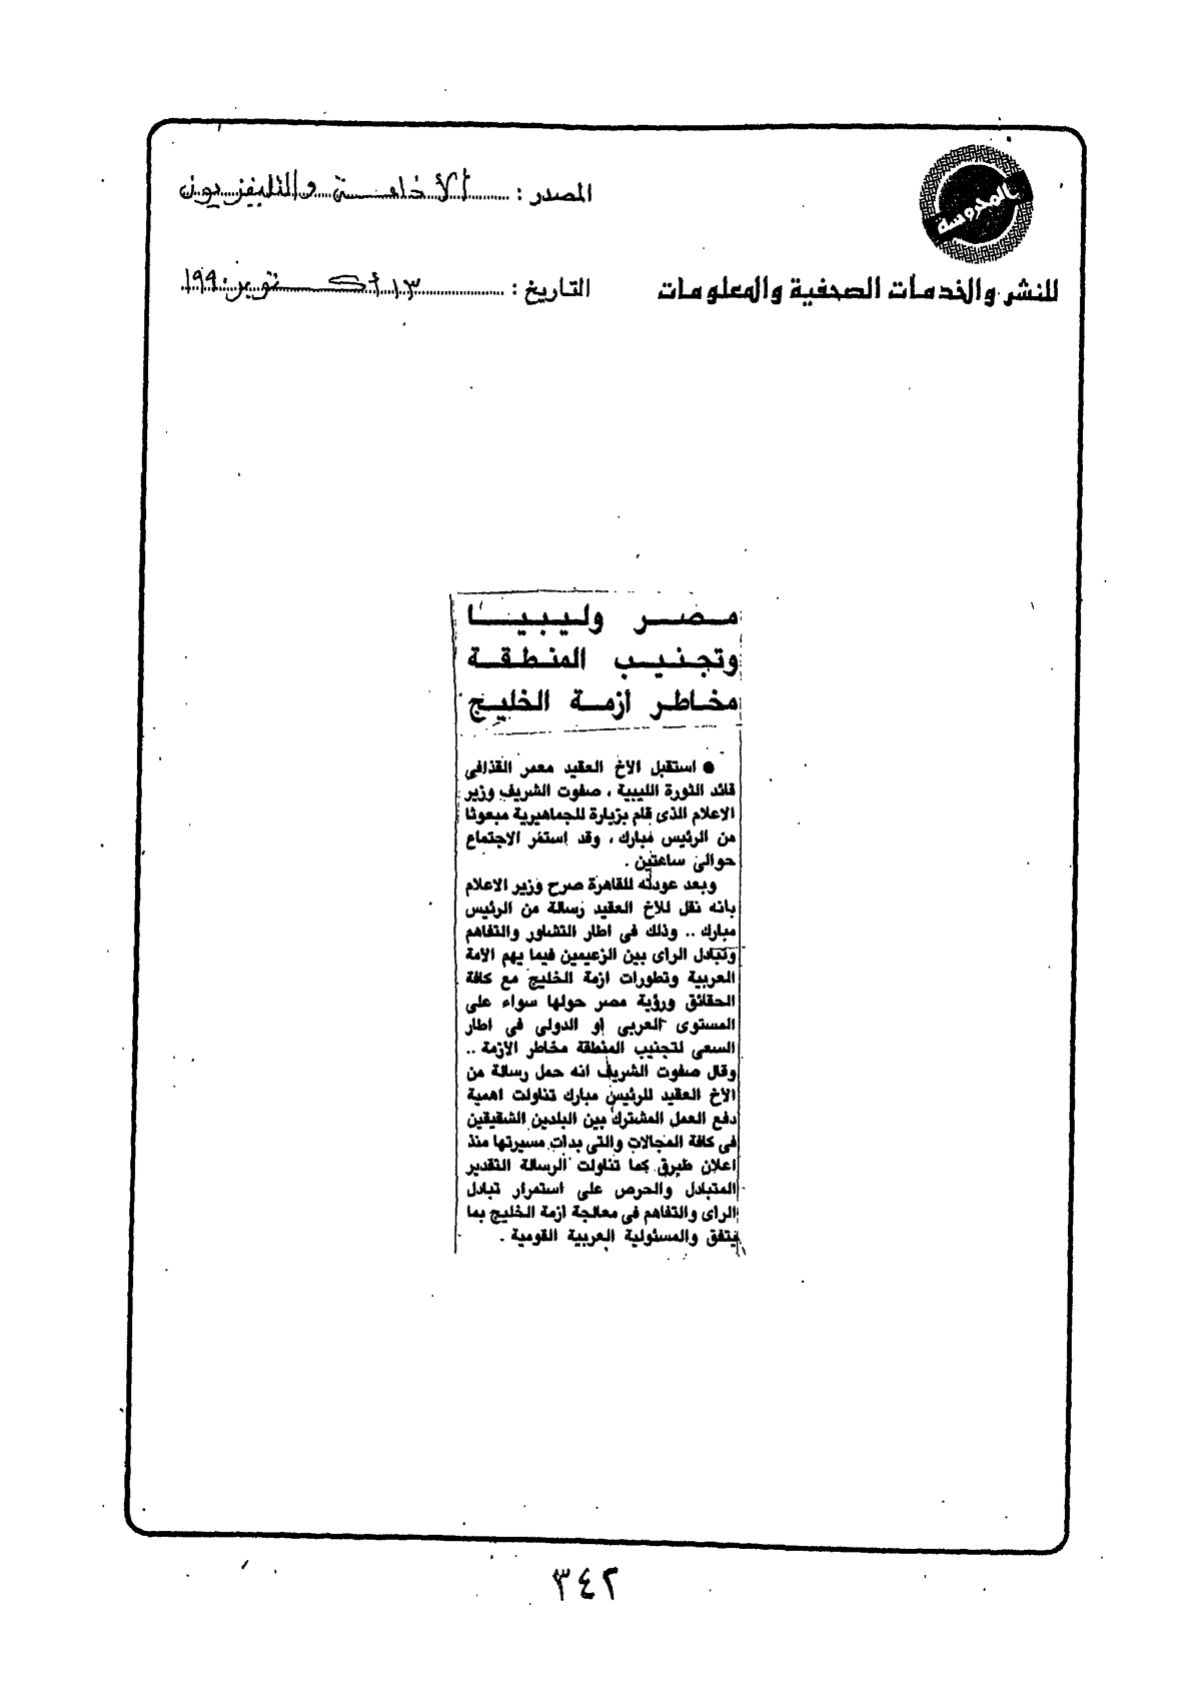 المحروسة
للنشر والخدمات الصحفية والمعلومات
المصدر : الأذاعة والتليفزيون
التاريخ : ١٣ أكتوبر ١٩٩٠
مصر وليبيا
وتجنيب المنطقة
مخاطر أزمة الخليج
● استقبل الاخ العقيد معمر القذافى
قائد الثورة الليبية ، صفوت الشريف وزير
الاعلام الذى قام بزيارة للجماهيرية مبعوثا
من الرئيس مبارك ، وقد استمر الاجتماع
حوالى ساعتين .
وبعد عودته للقاهرة صرح وزير الاعلام
بانه نقل للاخ العقيد رسالة من الرئيس
مبارك .. وذلك فى اطار التشاور والتفاهم
وتبادل الراى بين الزعيمين فيما يهم الامة
العربية وتطورات ازمة الخليج مع كافة
الحقائق ورؤية مصر حولها سواء على
المستوى العربى او الدولى فى اطار
السعى لتجنيب المنطقة مخاطر الازمة ..
وقال صفوت الشريف انه حمل رسالة من
الاخ العقيد للرئيس مبارك تناولت اهمية
دفع العمل المشترك بين البلدين الشقيقين
فى كافة المجالات والتى بدات مسيرتها منذ
اعلان طبرق كما تناولت الرسالة التقدير
المتبادل والحرص على استمرار تبادل
الراى والتفاهم فى معالجة ازمة الخليج بما
يتفق والمسئولية العربية القومية .
٣٤٢